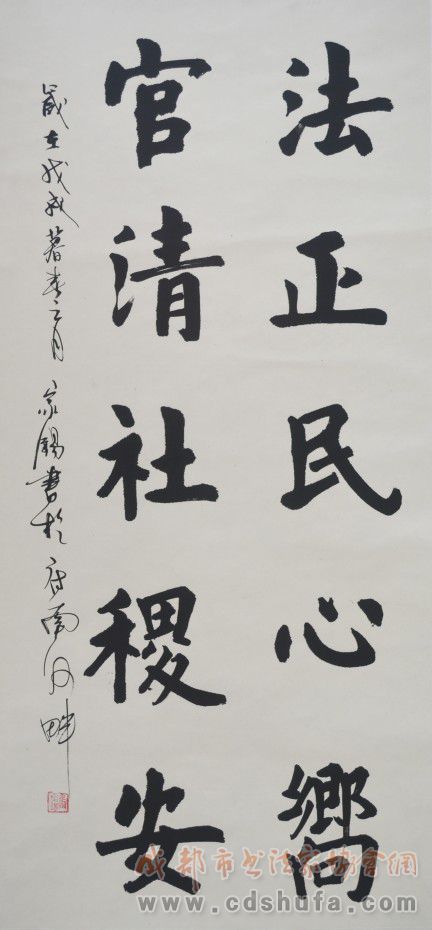 法正民心嚮
官清社稷安
歲在戊戌暮春三月家錫書於府南河畔
成都市书法家协会网
www.cdshufa.com